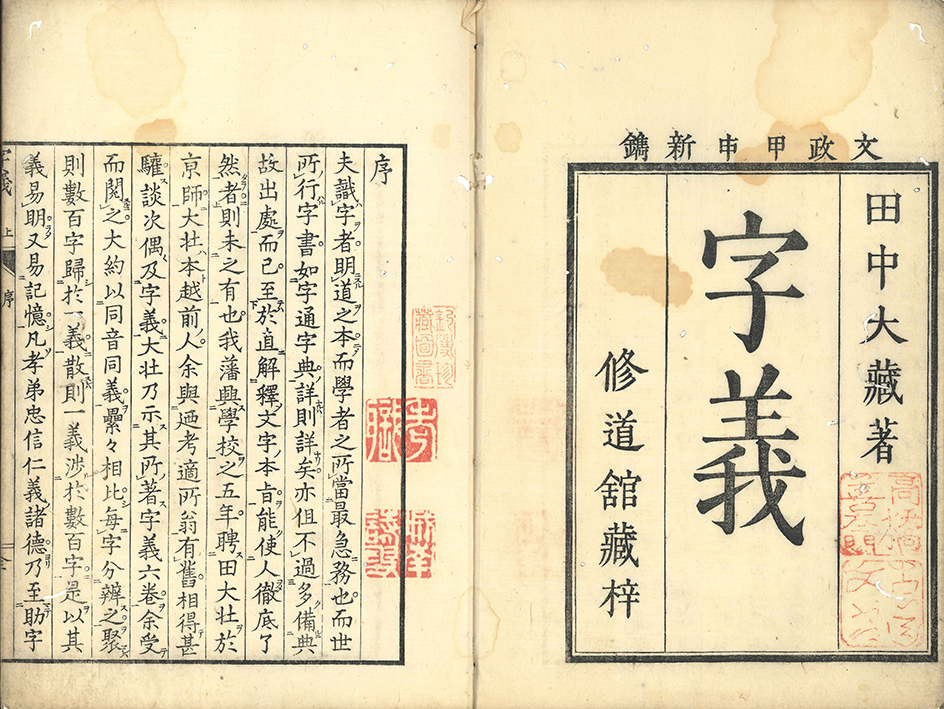 文政甲申新鐫
田中大藏著
字義
修道舘藏梓
序
夫識字者明道之本而學者之所當最急務也而世
所行字書如字通字典詳則詳矣亦但不過多備典
故出處而已至於直解釋文字本旨能使人徹底了
然者則未之有也我藩興學校之五年聘田大壯於
京師大壯本越前人余與迺考適所翁有舊相得甚
驩談次偶及字義大壯乃示其所著字義六卷余受
而閱之大約以同音同義纍々相比每字分辨之聚
則數百字歸於一義散則一義涉於數百字是以其
義易明又易記憶凡孝弟忠信仁義諸德乃至助字
字義 上 序